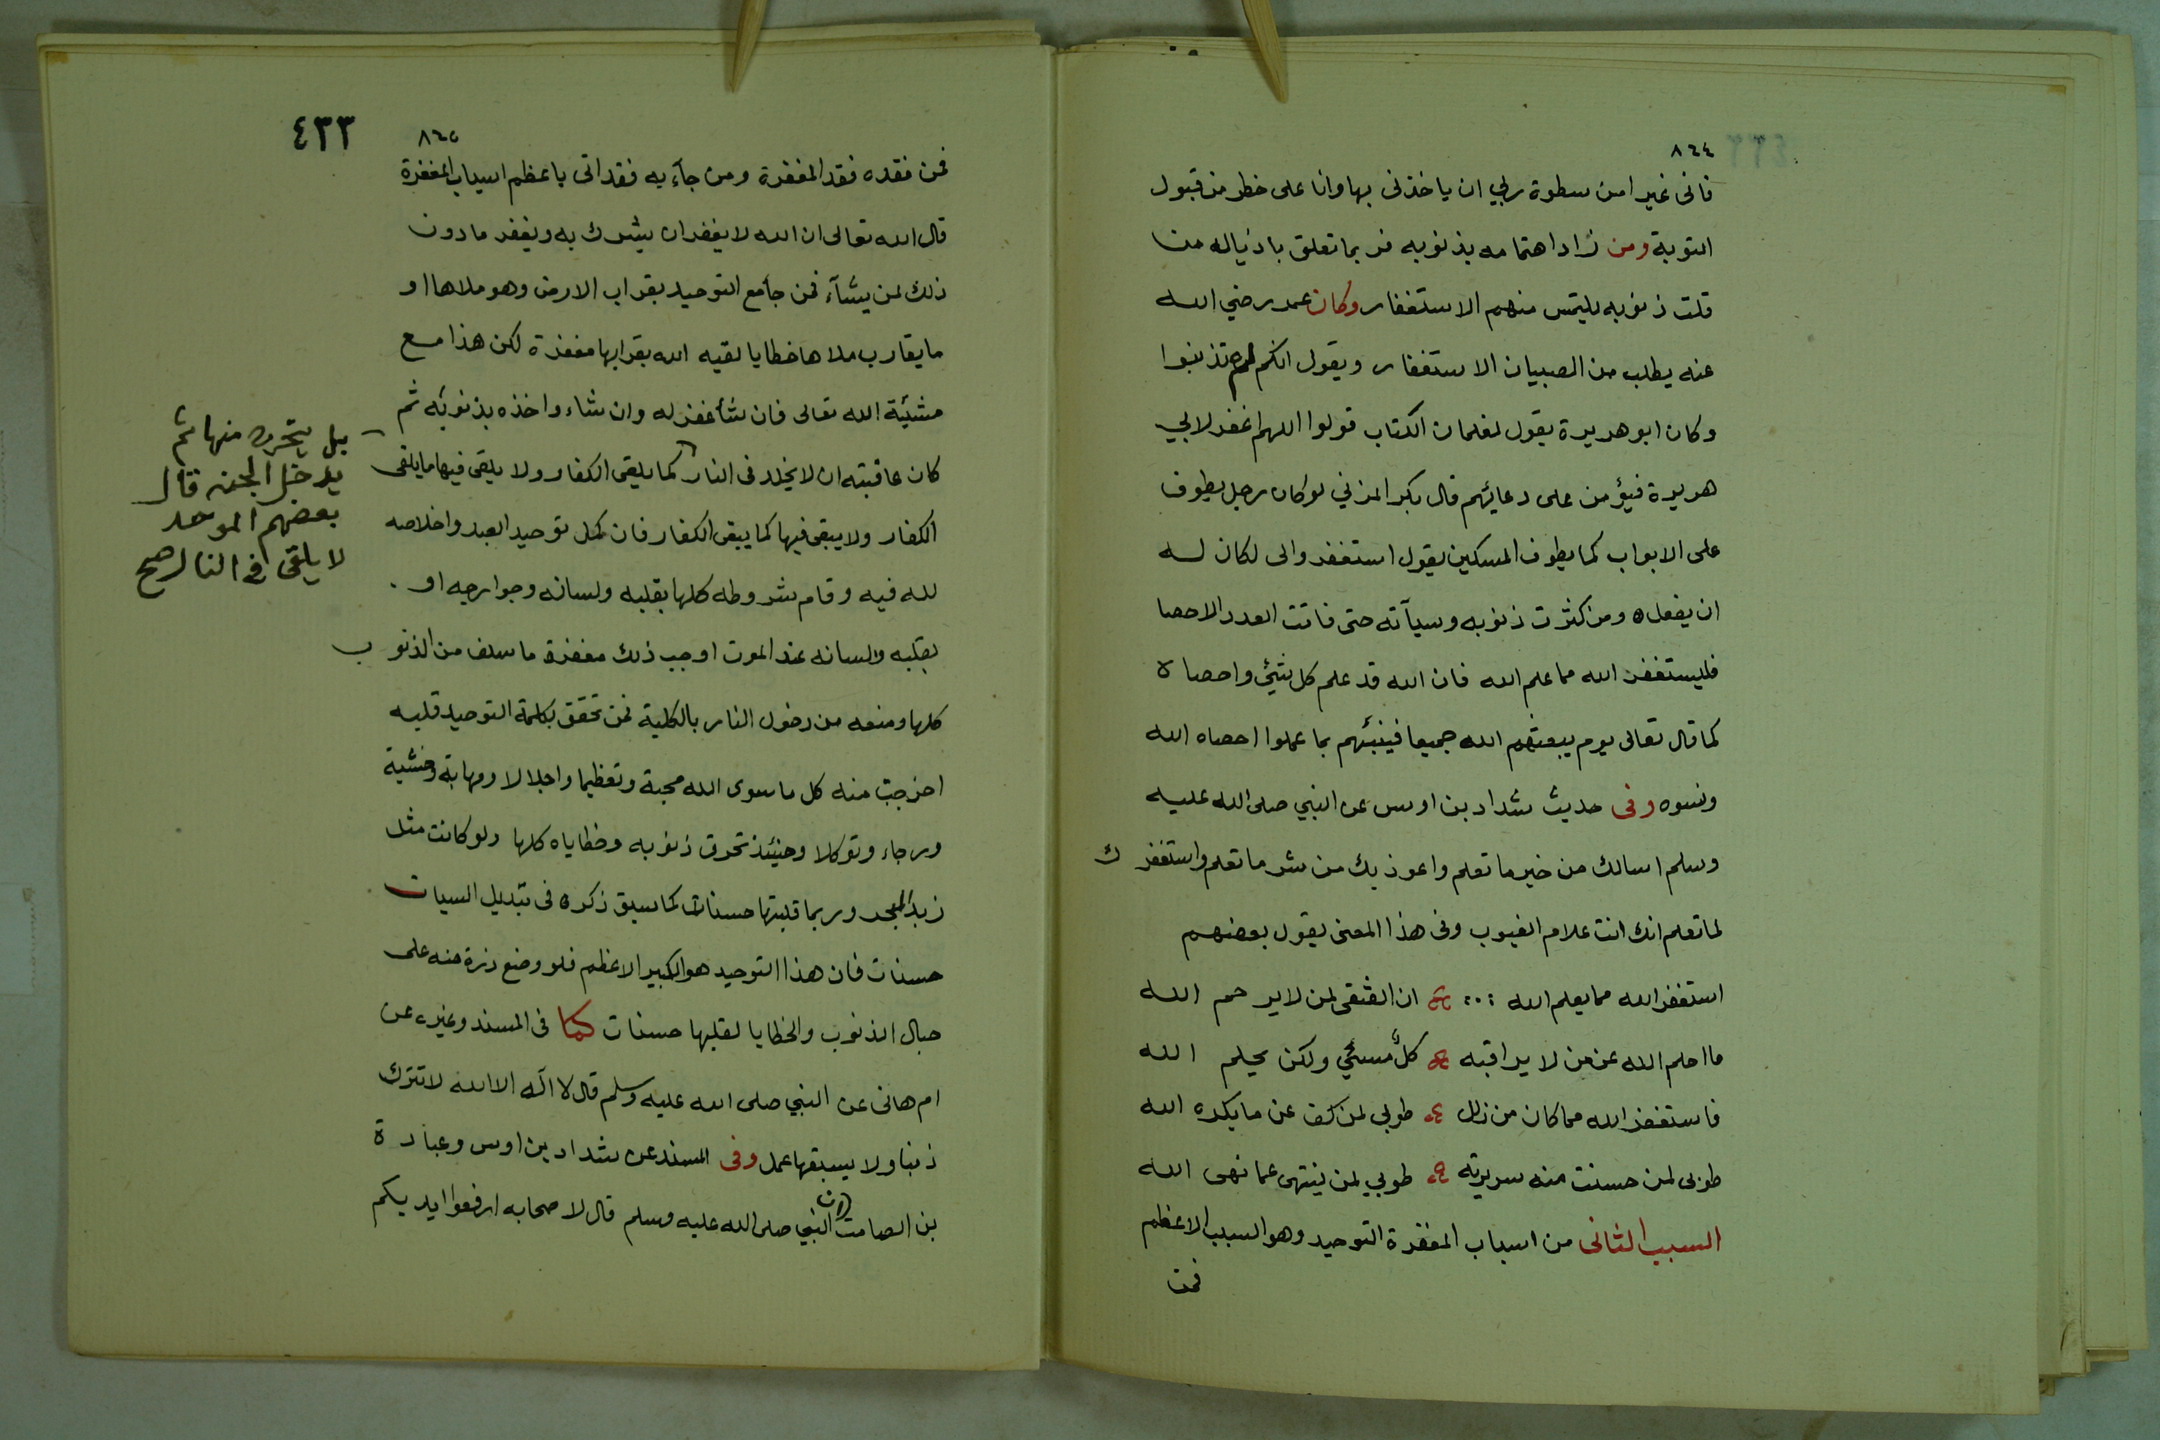 ٨٦٤
فانى غير امن سطوة ربي ان ياخذنى بها وانا على خطر من قبول
التوبة ومن زاد اهتمامه بذنوبه فربما تعلق باذياله من
قلت ذنوبه يلتمس منهم الاستغفار وكان عمر رضي الله
عنه يطلب من الصبيان الاستغفار ويقول انكم لم تذنبوا
وكان ابو هريرة يقول لغلمان الكتاب قولوا اللهم اغفر لابي
هريرة فيؤمن على دعائهم قال بكر المزني لو كان رجل يطوف
على الابواب كما يطوف المسكين يقول استغفروا لى لكان له
ان يفعله ومن كثرت ذنوبه وسيآته حتى فاتت العدد الاحصا
فليستغفر الله مما علم الله فان الله قد علم كل شئ واحصاه
كما قال تعالى يوم يبعثهم الله جميعا فينبئهم بما عملوا احصاه الله
ونسوه وفى حديث شداد بن اوس عن النبي صلى الله عليه
وسلم اسالك من خير ما تعلم واعوذ بك من شر ما تعلم واستغفرك
لما تعلم انك انت علام الغيوب وفى هذا المعنى يقول بعضهم
استغفر الله مما يعلم الله ان الشقى لمن لا يرحم الله
ما احلم الله عن من لا يراقبه كل مسئ ولكن يحلم الله
فاستغفر الله مما كان من زلل طوبى لمن كف عن ما يكره الله
طوبى لمن حسنت منه سريرته طوبي لمن ينتهى عما نهى الله
السبب الثانى من اسباب المغفرة التوحيد وهو السبب الاعظم
فمن
٤٣٣
٨٦٥
فمن فقده فقد المغفرة ومن جآء به فقد اتى باعظم اسباب المغفرة
قال الله تعالى ان الله لا يغفر ان يشرك به ويغفر ما دون
ذلك لمن يشآء فمن جآ مع التوحيد بقراب الارض وهو ملاها او
ما يقارب ملاها خطايا لقيه الله بقرابها مغفرة لكن هذا مع
مشئية الله تعالى فان شأ غفر له وان شاء واخذه بذنوبه ثم
كان عاقبته ان لا يخلد فى النار كما يلقى الكفار ولا يلقى فيها ما يلقى
الكفار ولا يبقى فيها كما يبقى الكفار فان كمل توحيد العبد واخلاصه
لله فيه وقام بشروطه كلها بقلبه ولسانه وجوارحه او
بقلبه ولسانه عند الموت اوجب ذلك مغفرة ما سلف من الذنوب
كلها ومنعه من دخول النار بالكلية فمن تحقق بكلمة التوحيد قلبه
اخرجت منه كل ما سوى الله محبة وتعظيما واجلالا ومهابة وخشية
ورجاء وتوكلا وحينئذ تحرق ذنوبه وخطاياه كلها ولو كانت مثل
زبد البحر وربما قلبتها حسنات كما سبق ذكره فى تبديل السيات
حسنات فان هذا التوحيد هو الكبير الاعظم فلو وضع ذرة منه على
جبال الذنوب والخطايا لقلبها حسنات كما فى المسند وغيره عن
ام هانى عن النبي صلى الله عليه وسلم قال لا اله الا الله لا تترك
ذنبا ولا يسبقها عمل وفى المسند عن شداد بن اوس وعبادة
بن الصامت ان النبي صلى الله عليه وسلم قال لاصحابه ارفعوا ايديكم
بل يخرج منها ثم
يدخل الجنه قال
بعضهم الموحد
لا يلقى فى النار صح